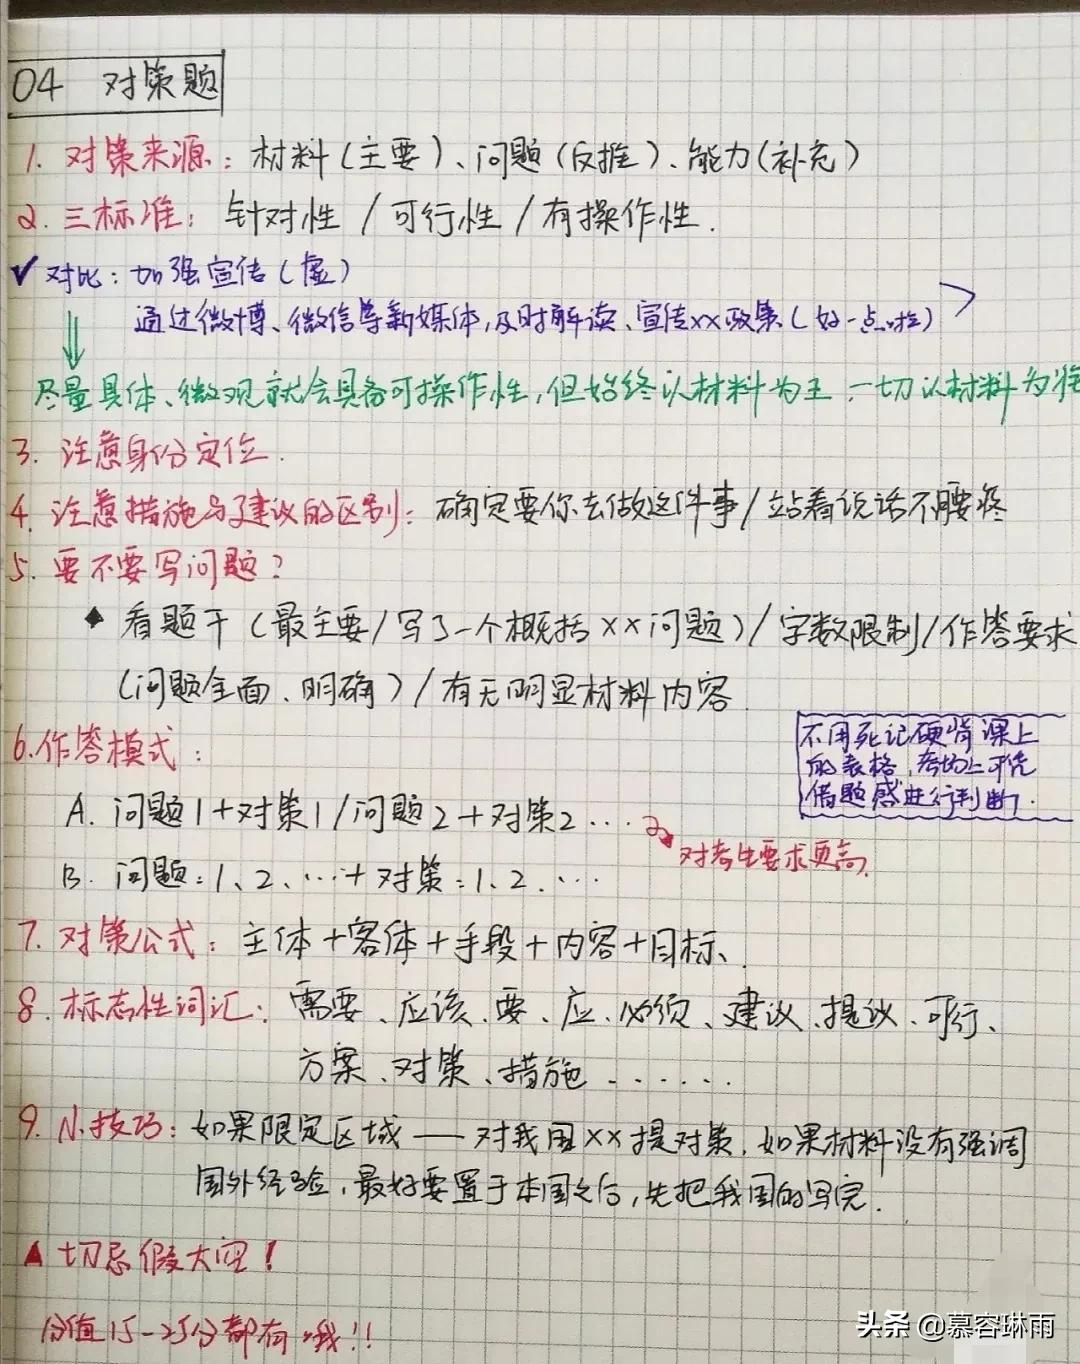 04 对策题
1. 对策来源：材料(主要)、问题(反推)、能力(补充)
2. 三标准：针对性/可行性/有操作性.
✓对比：加强宣传(虚)
通过微博、微信等新媒体,及时解读、宣传××政策(好一点啦)
尽量具体、微观就会具备可操作性,但始终以材料为主.一切以材料为准
3. 注意身份定位.
4. 注意措施与建议的区别：确定要你去做这件事/站着说话不腰疼
5. 要不要写问题？
◆ 看题干(最主要/写了一个概括××问题)/字数限制/作答要求
(问题全面、明确)/有无明显材料内容
6.作答模式：
不用死记硬背课上
的表格,考场上可凭
借题感进行判断.
A. 问题1+对策1/问题2+对策2…
对考生要求更高.
B. 问题:1、2、…+对策:1、2.…
7. 对策公式：主体+客体+手段+内容+目标.
8. 标志性词汇：需要、应该、要、应、必须、建议、提议、可行、
方案、对策、措施.......
9. 小技巧：如果限定区域——对我国××提对策,如果材料没有强调
国外经验,最好要置于本国之后,先把我国的写完.
▲切忌假大空!
分值15-25分都有哦!!
头条 @慕容琳雨